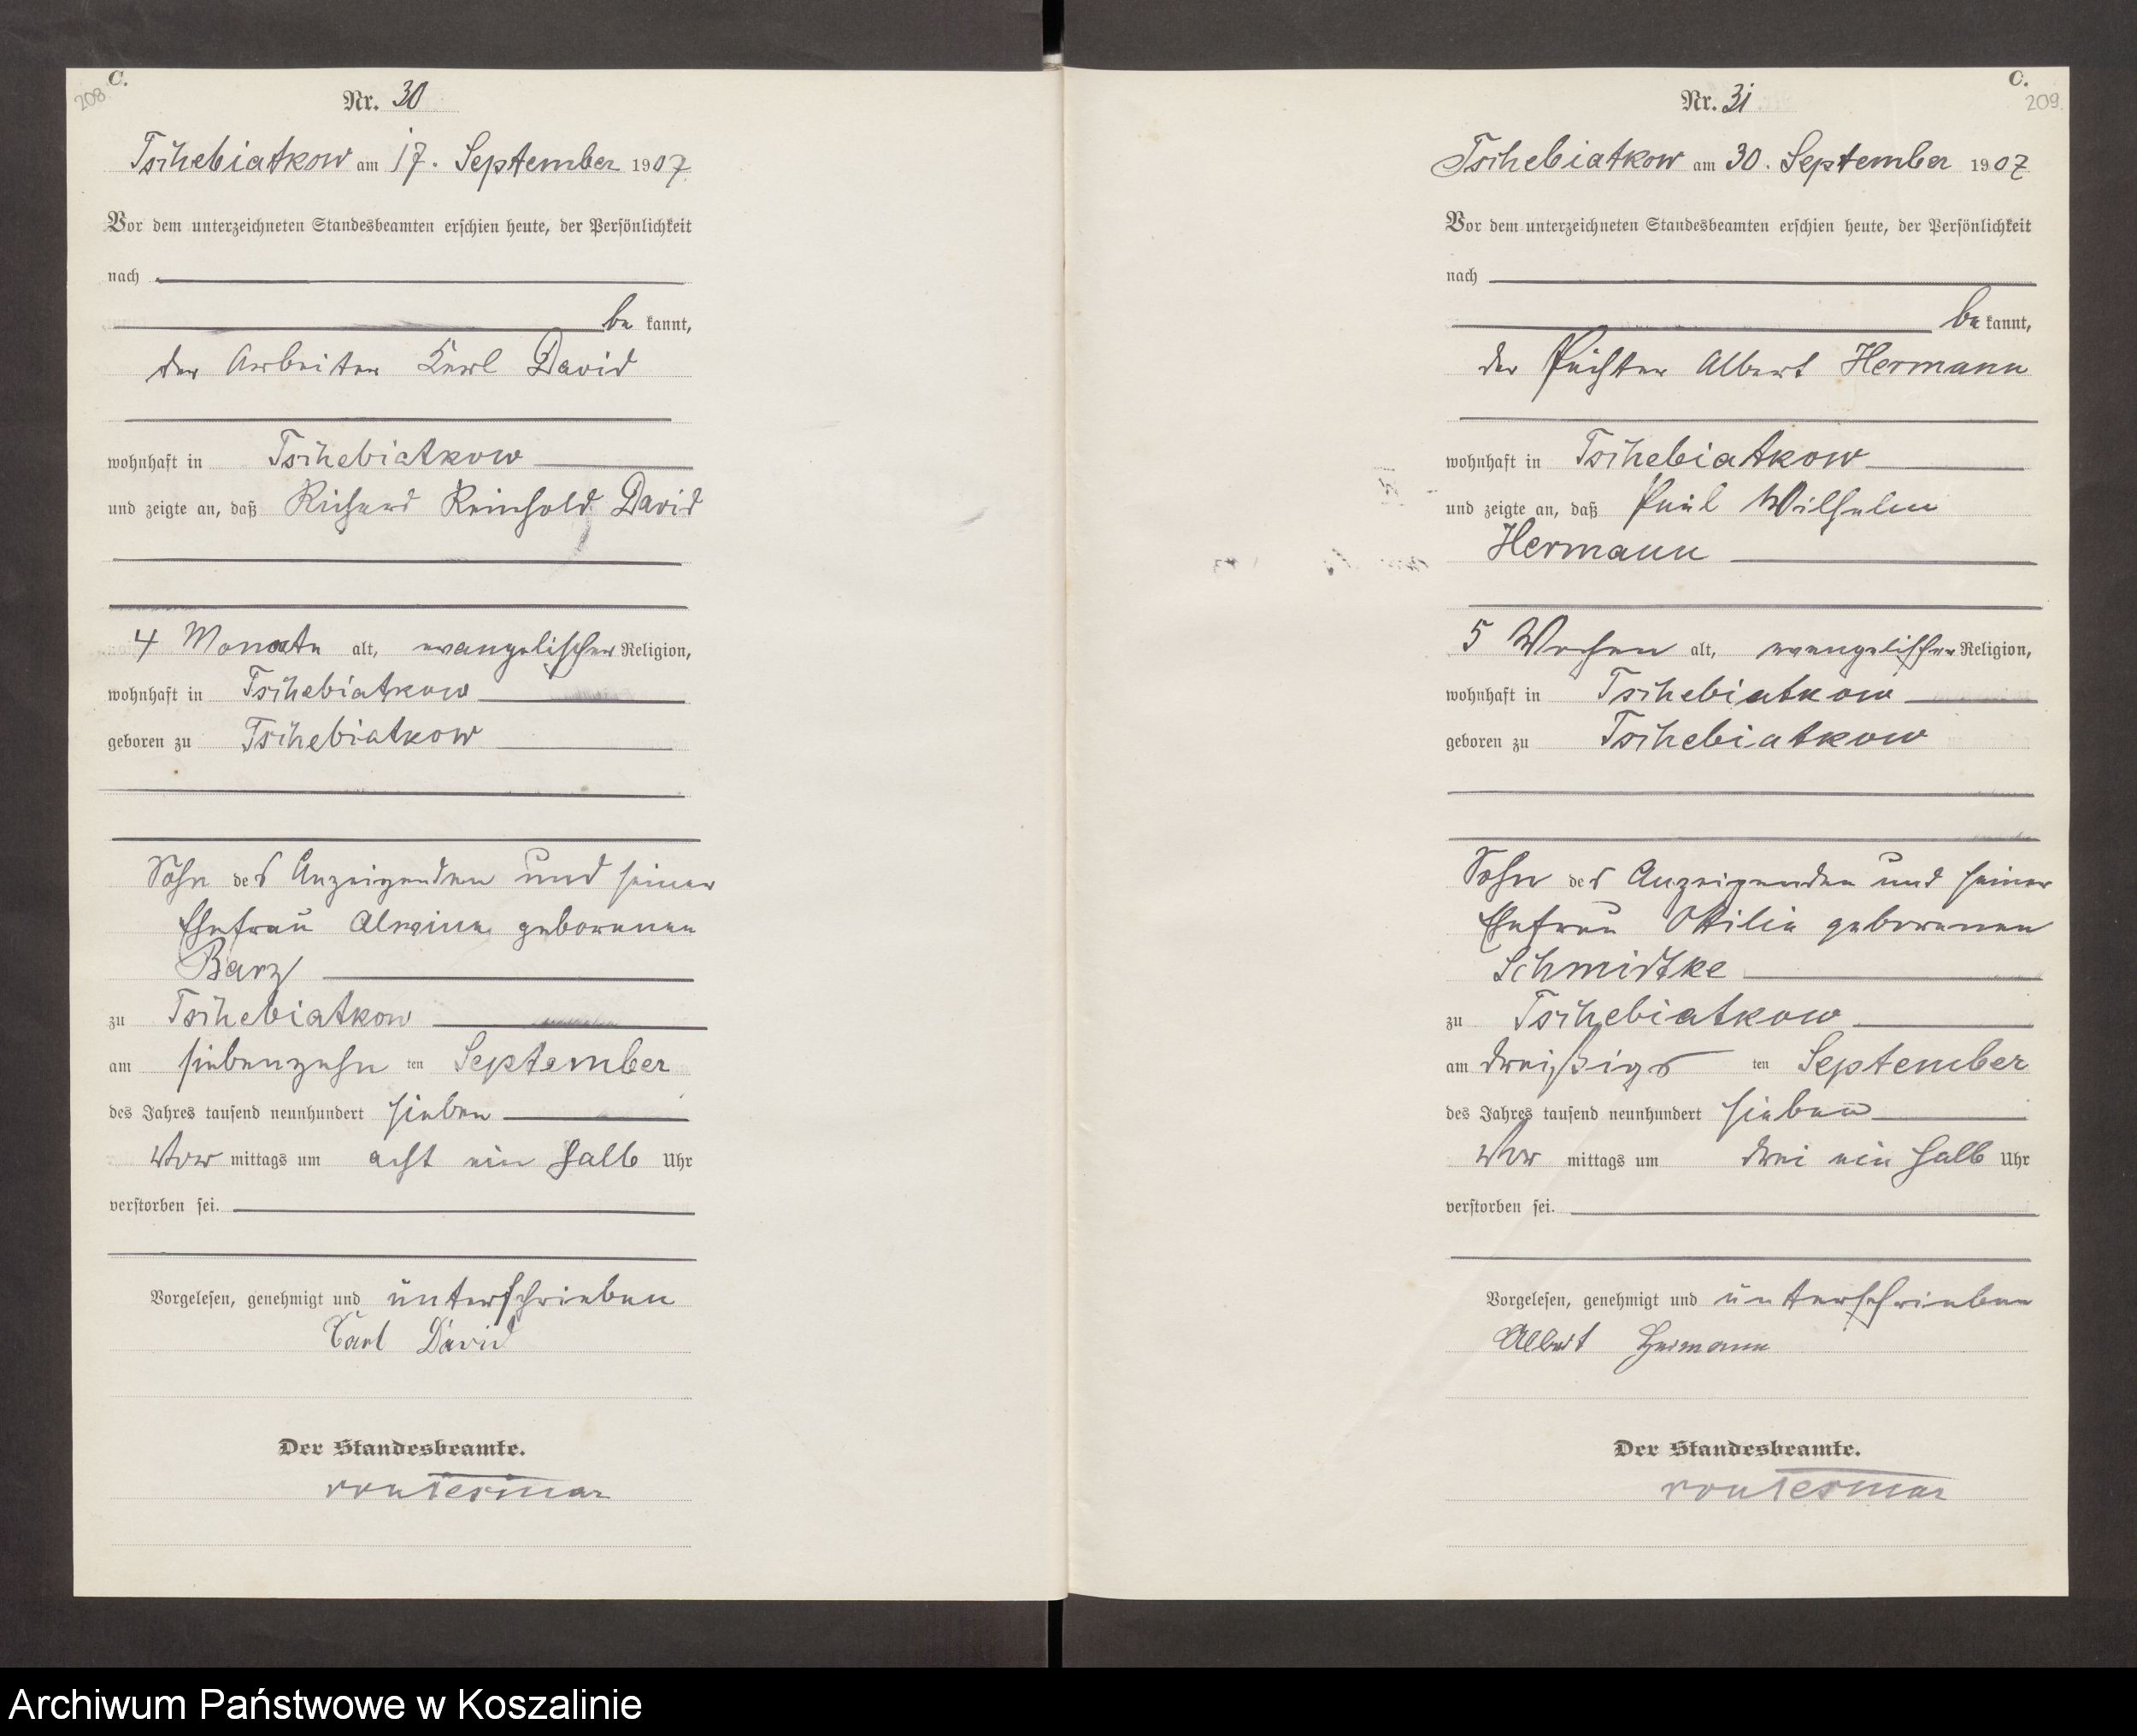 C.
208
Nr. 30
Tschebiatkow am 17. September 1907
Vor dem unterzeichneten Standesbeamten erschien heute, der Persönlichkeit
nach
be kannt,
der Arbeiter Karl David
wohnhaft in Tschebiatkow
und zeigte an, daß Richard Reinhold David
4 Monate alt, evangelischer Religion,
wohnhaft in Tschebiatkow
geboren zu Tschebiatkow
Sohn des Anzeigenden und seiner
Ehefrau Alwine geborenen
Barz
zu Tschebiatkow
am siebenzehn ten September
des Jahres tausend neunhundert sieben
Vor mittags um acht ein halb Uhr
verstorben sei.
Vorgelesen, genehmigt und unterschrieben
Carl David
Der Standesbeamte.
C.
209
Nr. 31
Tschebiatkow am 30. September 1907
Vor dem unterzeichneten Standesbeamten erschien heute, der Persönlichkeit
nach
be kannt,
der Pächter Albert Hermann
wohnhaft in Tschebiatkow
und zeigte an, daß Paul Wilhelm
Hermann
5 Wochen alt, evangelischer Religion,
wohnhaft in Tschebiatkow
geboren zu Tschebiatkow
Sohn des Anzeigenden und seiner
Ehefrau Ottilie geborenen
Schmidtke
zu Tschebiatkow
am dreißigs ten September
des Jahres tausend neunhundert sieben
Vor mittags um drei ein halb Uhr
verstorben sei.
Vorgelesen, genehmigt und unterschrieben
Albert Hermann
Der Standesbeamte.
Archiwum Państwowe w Koszalinie